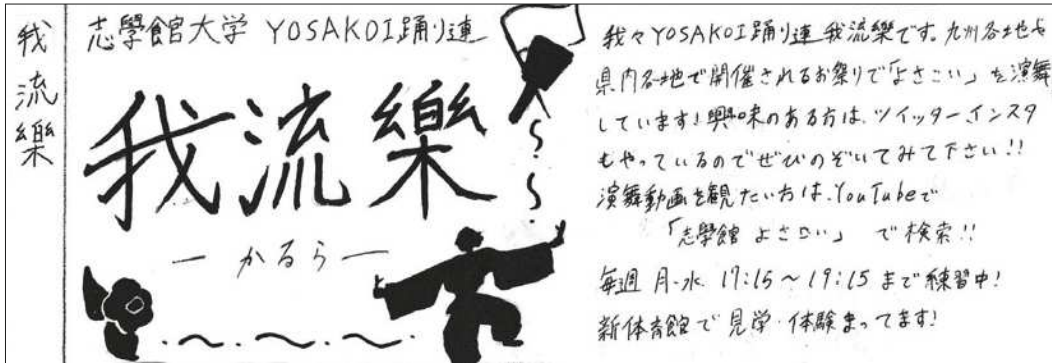 我流樂
志學館大学 YOSAKOI踊り連
我流樂
ーかるらー
我々YOSAKOI踊り連 我流樂です。九州各地や
県内各地で開催されるお祭りで「よさこい」を演舞
しています!興味のある方は、ツイッター インスタ
もやっているのでぜひのぞいてみて下さい!!
演舞動画を観たい方は、YouTubeで
「志學館 よさこい」 で検索!!
毎週 月・水 17:15〜19:15 まで練習中!
新体育館で見学・体験まってます!